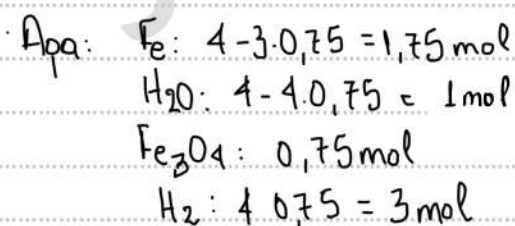 Άρα: Fe: 4-3·0,75 = 1,75 mol
H2O: 4-4·0,75 = 1 mol
Fe3O4: 0,75 mol
H2: 4 0,75 = 3 mol